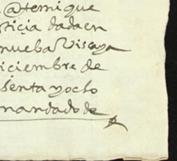 @temigue
sticia dada en
nueba Viscaya
diciembre de
senta y ocho
mandado de